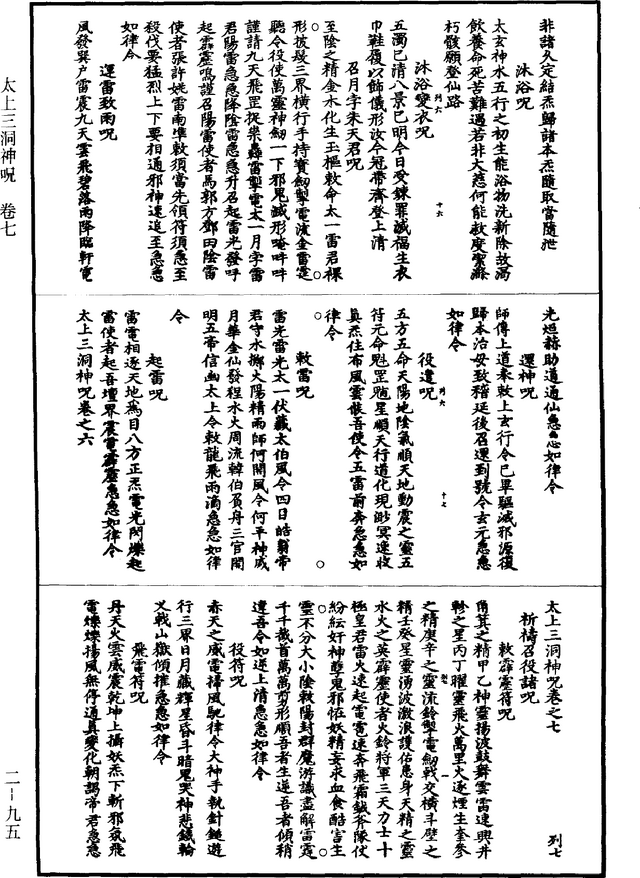 非諸久定結炁歸諸本炁隨取當隨泄
沐浴呪
太玄神水五行之初生能浴物洗新除故渴
飲養命死苦難遇若非大慈何能救度潔滌
朽骸願登仙路
沐浴變衣呪
五濁已清八景已明今日受鍊罪滅福生衣
巾鞋履以飾儀形汝今冠帶齊登上清
召月孛朱天君呪
至陰之精金水化生玉樞敕命太一雷君裸
形披髮三界橫行手持寶劒掣電流金雷霆
聽令役使萬靈神劒一下邪鬼滅形唵吽吽
謹請九天飛罡捉祟轟雷掣電太一月孛雷
君陽雷急急降陰雷急急升召起雷光發呼
起霹靂鳴謹召陽雷使者馬郭方鄧田陰雷
使者張許姚雷南準敕須當先領符須急至
殺伐要猛烈上下要相通邪神速追至急急
如律令
運雷致雨呪
風發巽户雷震九天雲飛碧落雨降臨軒電
光烜赫助道通仙急急如律令
還神呪
師傳上道奉敕上玄行令已畢驅滅邪源復
歸本治毋致稽延後召還到號令玄元急急
如律令
役遣呪
五方五命天陽地陰氣順天地動震之靈五
符元命魁罡隨星順天行道化現眇冥逢收
真炁住布風雲骸吾使令五雷前奔急急如
律令
敕雷呪
雷光雷光太一伏藏太伯風令四目皓翁帝
君守水擲火陽精雨師何開風令何平神威
月華金仙發程水火周流韓伯負舟三官聞
明五帝信幽太上令敕龍飛雨滴急急如律
令
起雷呪
雷電相逐天地爲目八方正炁電光閃爍起
雷使者起吾壇界震電霹靂急急如律令
太上三洞神呪卷之六
太上三洞神呪卷之七
祈禱召役諸呪
敕霹靂符呪
角箕之精甲乙神靈揚波鼓舞雲雷速興井
軫之星丙丁曜靈飛火萬里火逐煙生奎參
之精庚辛之靈流鈴掣電劒戟交橫斗壁之
精壬癸星靈湧波激浪護佑惠身天精之靈
水火之英霹靂使者火鈴將軍三天力士十
極皇君雷火速起電速奔飛霜鉞斧隊仗
紛紜奸神孽鬼邪怪妖精妄求血食酷害生
靈不分大小陰敕陽封群魔游識盡解雷霆
千千截首萬萬剪形順吾者生逆吾者傾稍
違吾令如逆上清急急如律令
役符呪
赤天之威電掃風馳律令大神手執針鎚遊
行三界日月藏輝星昏斗暗鬼哭神悲鐵輪
乂戟山嶽傾摧急急如律令
飛電符呪
丹天火雲威震乾坤上攝妖炁下斬邪氛飛
電爍爍揚風無停通真變化朝謁帝君急急
太上三洞神呪 卷七
二-九五